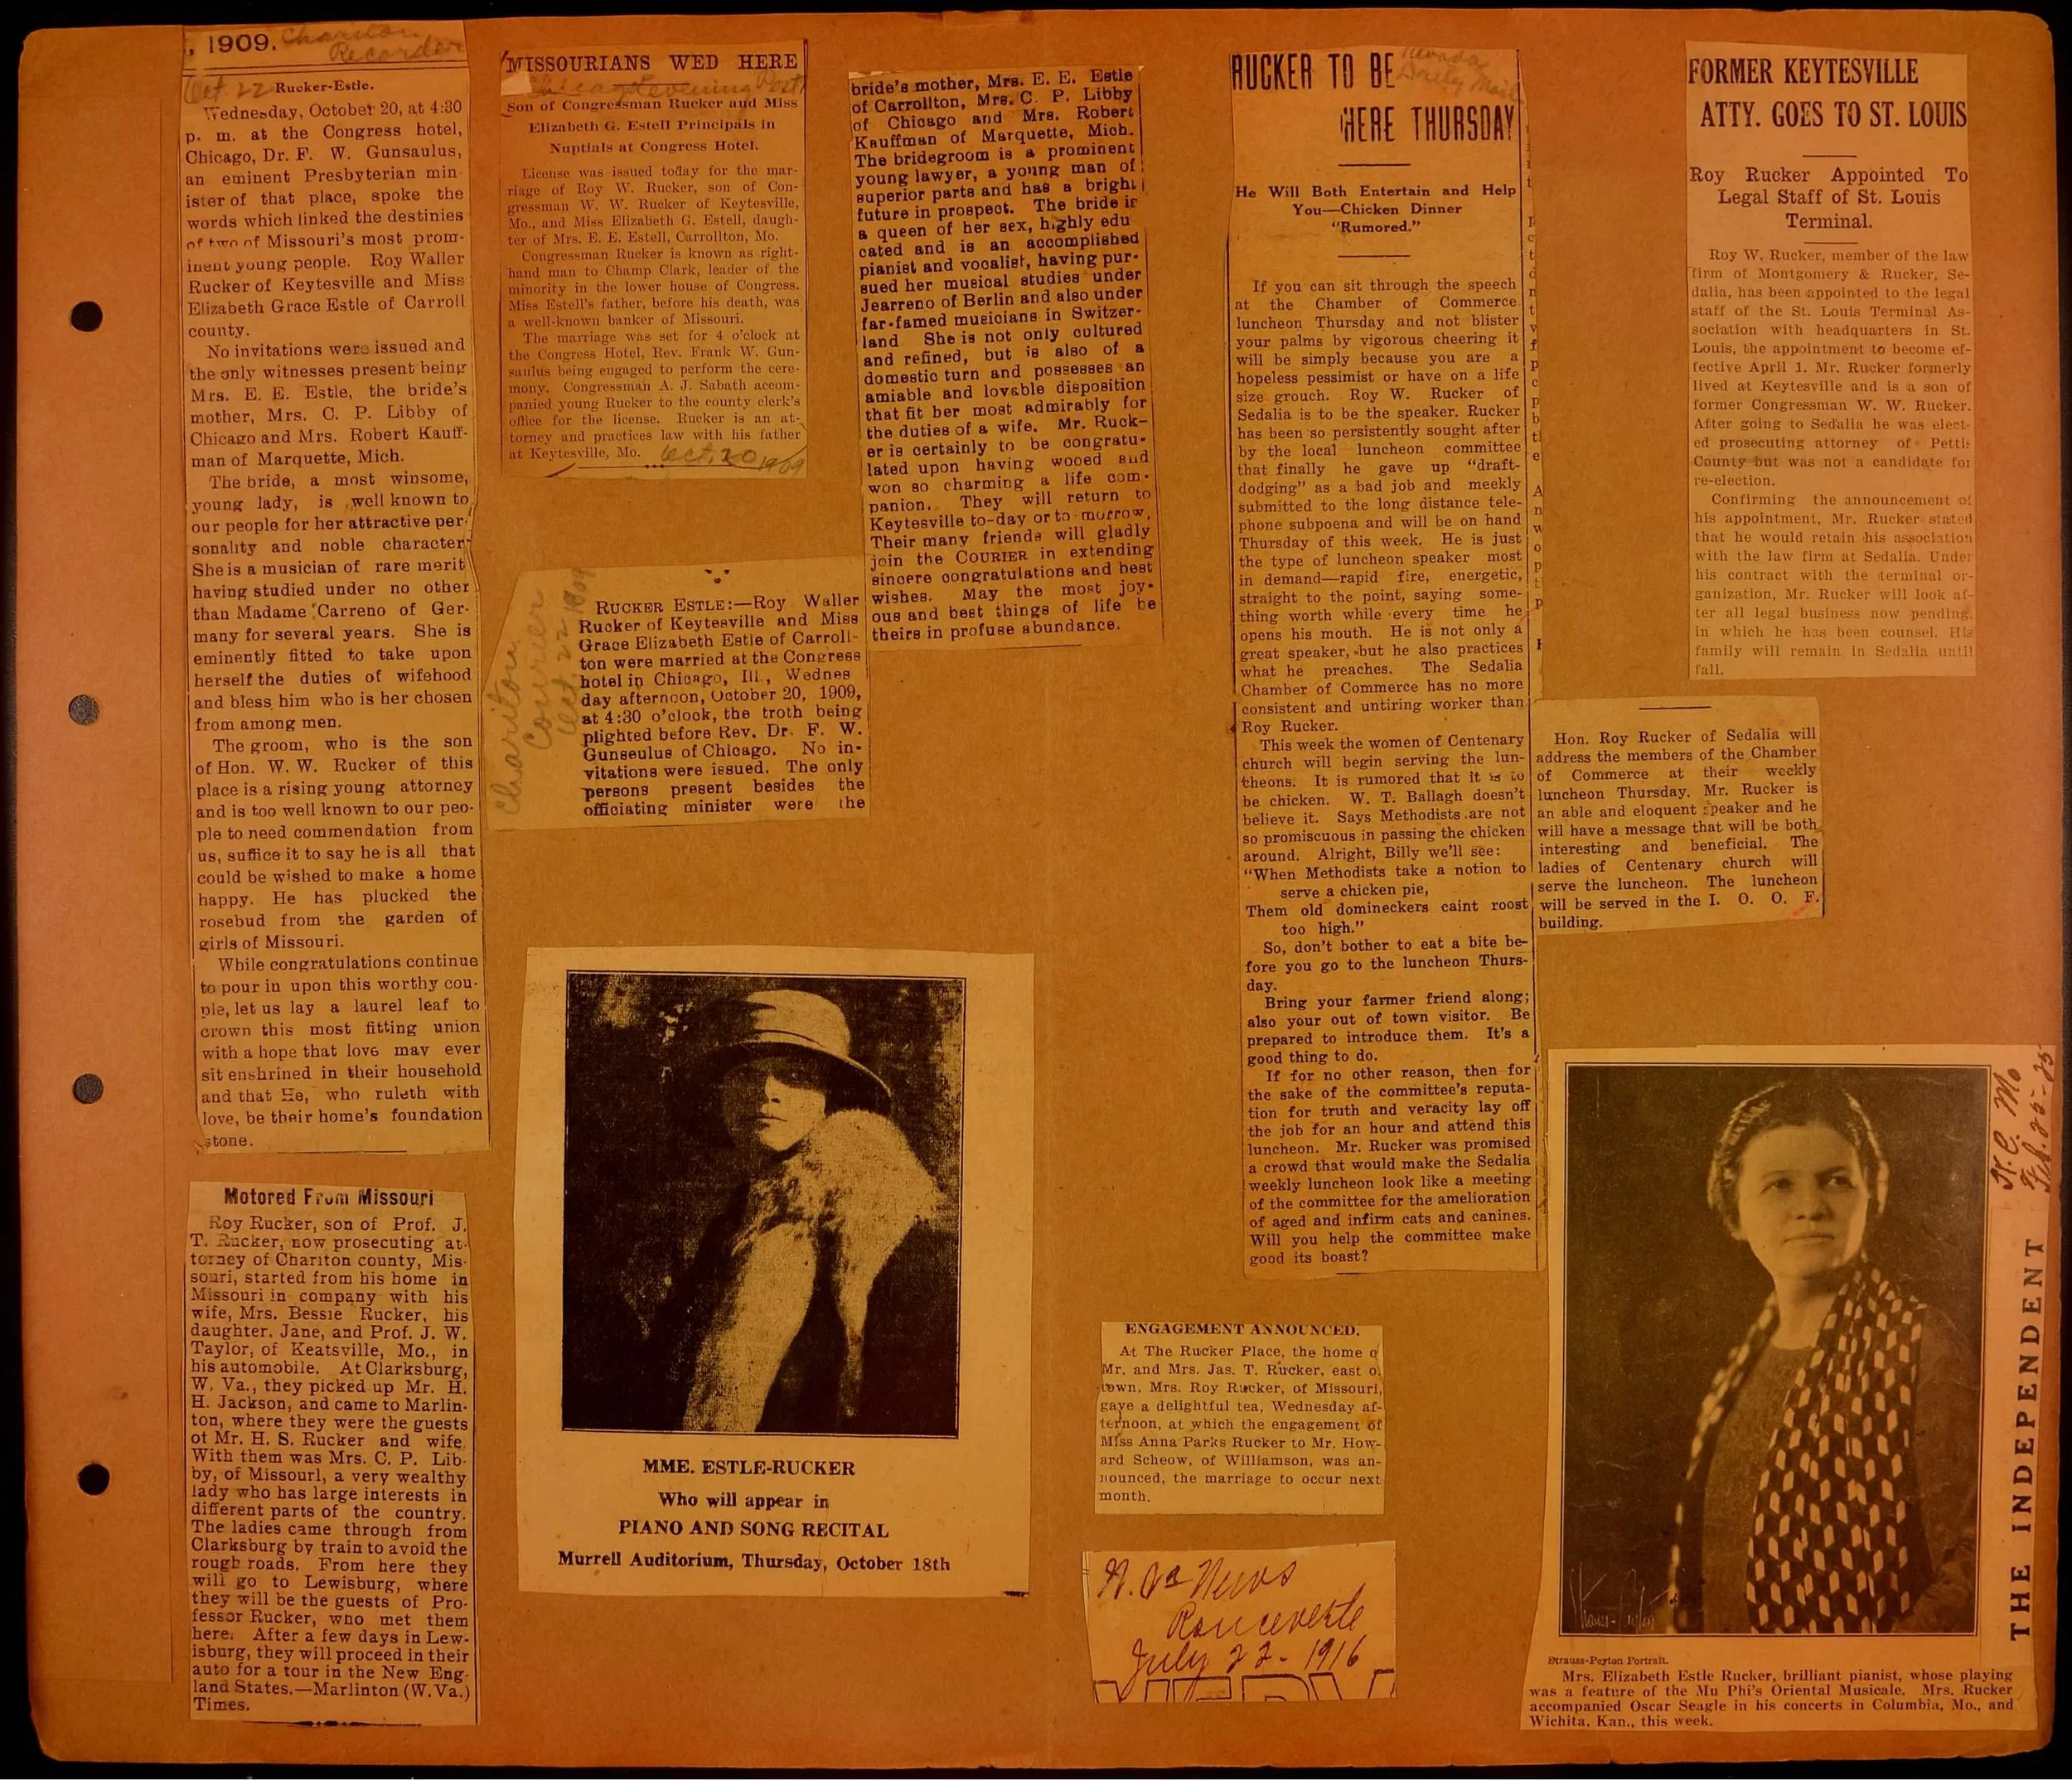 , 1909. Chariton
Recorder
Oct. 22 Rucker-Estle.
Wednesday, October 20, at 4:30
p. m. at the Congress hotel,
Chicago, Dr. F. W. Gunsaulus,
an eminent Presbyterian min-
ister of that place, spoke the
words which linked the destinies
of two of Missouri's most prom-
inent young people. Roy Waller
Rucker of Keytesville and Miss
Elizabeth Grace Estle of Carroll
county.
No invitations were issued and
the only witnesses present being
Mrs. E. E. Estle, the bride's
mother, Mrs. C. P. Libby of
Chicago and Mrs. Robert Kauff-
man of Marquette, Mich.
The bride, a most winsome,
young lady, is well known to
our people for her attractive per-
sonality and noble character.
She is a musician of rare merit
having studied under no other
than Madame Carreno of Ger-
many for several years. She is
eminently fitted to take upon
herself the duties of wifehood
and bless him who is her chosen
from among men.
The groom, who is the son
of Hon. W. W. Rucker of this
place is a rising young attorney
and is too well known to our peo-
ple to need commendation from
us, suffice it to say he is all that
could be wished to make a home
happy. He has plucked the
rosebud from the garden of
girls of Missouri.
While congratulations continue
to pour in upon this worthy cou-
ple, let us lay a laurel leaf to
crown this most fitting union
with a hope that love may ever
sit enshrined in their household
and that He, who ruleth with
love, be their home's foundation
stone.
Motored From Missouri
Roy Rucker, son of Prof. J.
T. Rucker, now prosecuting at-
torney of Chariton county, Mis-
souri, started from his home in
Missouri in company with his
wife, Mrs. Bessie Rucker, his
daughter, Jane, and Prof. J. W.
Taylor, of Keatsville, Mo., in
his automobile. At Clarksburg,
W. Va., they picked up Mr. H.
H. Jackson, and came to Marlin-
ton, where they were the guests
of Mr. H. S. Rucker and wife.
With them was Mrs. C. P. Lib-
by, of Missouri, a very wealthy
lady who has large interests in
different parts of the country.
The ladies came through from
Clarksburg by train to avoid the
rough roads. From here they
will go to Lewisburg, where
they will be the guests of Pro-
fessor Rucker, who met them
here. After a few days in Lew-
isburg, they will proceed in their
auto for a tour in the New Eng-
land States.—Marlinton (W. Va.)
Times.
MISSOURIANS WED HERE
Chicago Evening Post
Son of Congressman Rucker and Miss
Elizabeth G. Estell Principals in
Nuptials at Congress Hotel.
License was issued today for the mar-
riage of Roy W. Rucker, son of Con-
gressman W. W. Rucker of Keytesville,
Mo., and Miss Elizabeth G. Estell, daugh-
ter of Mrs. E. E. Estell, Carrollton, Mo.
Congressman Rucker is known as right-
hand man to Champ Clark, leader of the
minority in the lower house of Congress.
Miss Estell's father, before his death, was
a well-known banker of Missouri.
The marriage was set for 4 o'clock at
the Congress Hotel, Rev. Frank W. Gun-
saulus being engaged to perform the cere-
mony. Congressman A. J. Sabath accom-
panied young Rucker to the county clerk's
office for the license. Rucker is an at-
torney and practices law with his father
at Keytesville, Mo. Oct. 20 1909
Chariton
Courier
Oct. 22 1909
RUCKER ESTLE:—Roy Waller
Rucker of Keytesville and Miss
Grace Elizabeth Estle of Carroll-
ton were married at the Congress
hotel in Chicago, Ill., Wednes
day afternoon, October 20, 1909,
at 4:30 o'clock, the troth being
plighted before Rev. Dr. F. W.
Gunseulus of Chicago. No in-
vitations were issued. The only
persons present besides the
officiating minister were the
bride's mother, Mrs. E. E. Estle
of Carrollton, Mrs. C. P. Libby
of Chicago and Mrs. Robert
Kauffman of Marquette, Mich.
The bridegroom is a prominent
young lawyer, a young man of
superior parts and has a bright
future in prospect. The bride is
a queen of her sex, highly edu
cated and is an accomplished
pianist and vocalist, having pur-
sued her musical studies under
Jearreno of Berlin and also under
far-famed musicians in Switzer-
land She is not only cultured
and refined, but is also of a
domestic turn and possesses an
amiable and lovable disposition
that fit her most admirably for
the duties of a wife. Mr. Ruck-
er is certainly to be congratu-
lated upon having wooed and
won so charming a life com-
panion. They will return to
Keytesville to-day or to-morrow.
Their many friends will gladly
join the COURIER in extending
sincere congratulations and best
wishes. May the most joy-
ous and best things of life be
theirs in profuse abundance.
MME. ESTLE-RUCKER
Who will appear in
PIANO AND SONG RECITAL
Murrell Auditorium, Thursday, October 18th
RUCKER TO BE
HERE THURSDAY
Nevada
Daily Mail
He Will Both Entertain and Help
You—Chicken Dinner
"Rumored."
If you can sit through the speech
at the Chamber of Commerce
luncheon Thursday and not blister
your palms by vigorous cheering it
will be simply because you are a
hopeless pessimist or have on a life
size grouch. Roy W. Rucker of
Sedalia is to be the speaker. Rucker
has been so persistently sought after
by the local luncheon committee
that finally he gave up "draft-
dodging" as a bad job and meekly
submitted to the long distance tele-
phone subpoena and will be on hand
Thursday of this week. He is just
the type of luncheon speaker most
in demand—rapid fire, energetic,
straight to the point, saying some-
thing worth while every time he
opens his mouth. He is not only a
great speaker, but he also practices
what he preaches. The Sedalia
Chamber of Commerce has no more
consistent and untiring worker than
Roy Rucker.
This week the women of Centenary
church will begin serving the lun-
cheons. It is rumored that it is to
be chicken. W. T. Ballagh doesn't
believe it. Says Methodists are not
so promiscuous in passing the chicken
around. Alright, Billy we'll see:
"When Methodists take a notion to
serve a chicken pie,
Them old domineckers caint roost
too high."
So, don't bother to eat a bite be-
fore you go to the luncheon Thurs-
day.
Bring your farmer friend along;
also your out of town visitor. Be
prepared to introduce them. It's a
good thing to do.
If for no other reason, then for
the sake of the committee's reputa-
tion for truth and veracity lay off
the job for an hour and attend this
luncheon. Mr. Rucker was promised
a crowd that would make the Sedalia
weekly luncheon look like a meeting
of the committee for the amelioration
of aged and infirm cats and canines.
Will you help the committee make
good its boast?
ENGAGEMENT ANNOUNCED.
At The Rucker Place, the home o
Mr. and Mrs. Jas. T. Rucker, east o
town, Mrs. Roy Rucker, of Missouri,
gave a delightful tea, Wednesday af-
ternoon, at which the engagement of
Miss Anna Parks Rucker to Mr. How-
ard Scheow, of Williamson, was an-
nounced, the marriage to occur next
month.
W. Va News
Ronceverte
July 22 - 1916
FORMER KEYTESVILLE
ATTY. GOES TO ST. LOUIS
Roy Rucker Appointed To
Legal Staff of St. Louis
Terminal.
Roy W. Rucker, member of the law
firm of Montgomery & Rucker, Se-
dalia, has been appointed to the legal
staff of the St. Louis Terminal As-
sociation with headquarters in St.
Louis, the appointment to become ef-
fective April 1. Mr. Rucker formerly
lived at Keytesville and is a son of
former Congressman W. W. Rucker.
After going to Sedalia he was elect-
ed prosecuting attorney of Pettis
County but was not a candidate for
re-election.
Confirming the announcement of
his appointment, Mr. Rucker stated
that he would retain his association
with the law firm at Sedalia. Under
his contract with the terminal or-
ganization, Mr. Rucker will look af-
ter all legal business now pending,
in which he has been counsel. His
family will remain in Sedalia until
fall.
Hon. Roy Rucker of Sedalia will
address the members of the Chamber
of Commerce at their weekly
luncheon Thursday. Mr. Rucker is
an able and eloquent speaker and he
will have a message that will be both
interesting and beneficial. The
ladies of Centenary church will
serve the luncheon. The luncheon
will be served in the I. O. O. F.
building.
K. C. Mo
Feb. 25-25
THE INDEPENDENT
Strauss-Peyton Portrait.
Mrs. Elizabeth Estle Rucker, brilliant pianist, whose playing
was a feature of the Mu Phi's Oriental Musicale. Mrs. Rucker
accompanied Oscar Seagle in his concerts in Columbia, Mo., and
Wichita, Kan., this week.